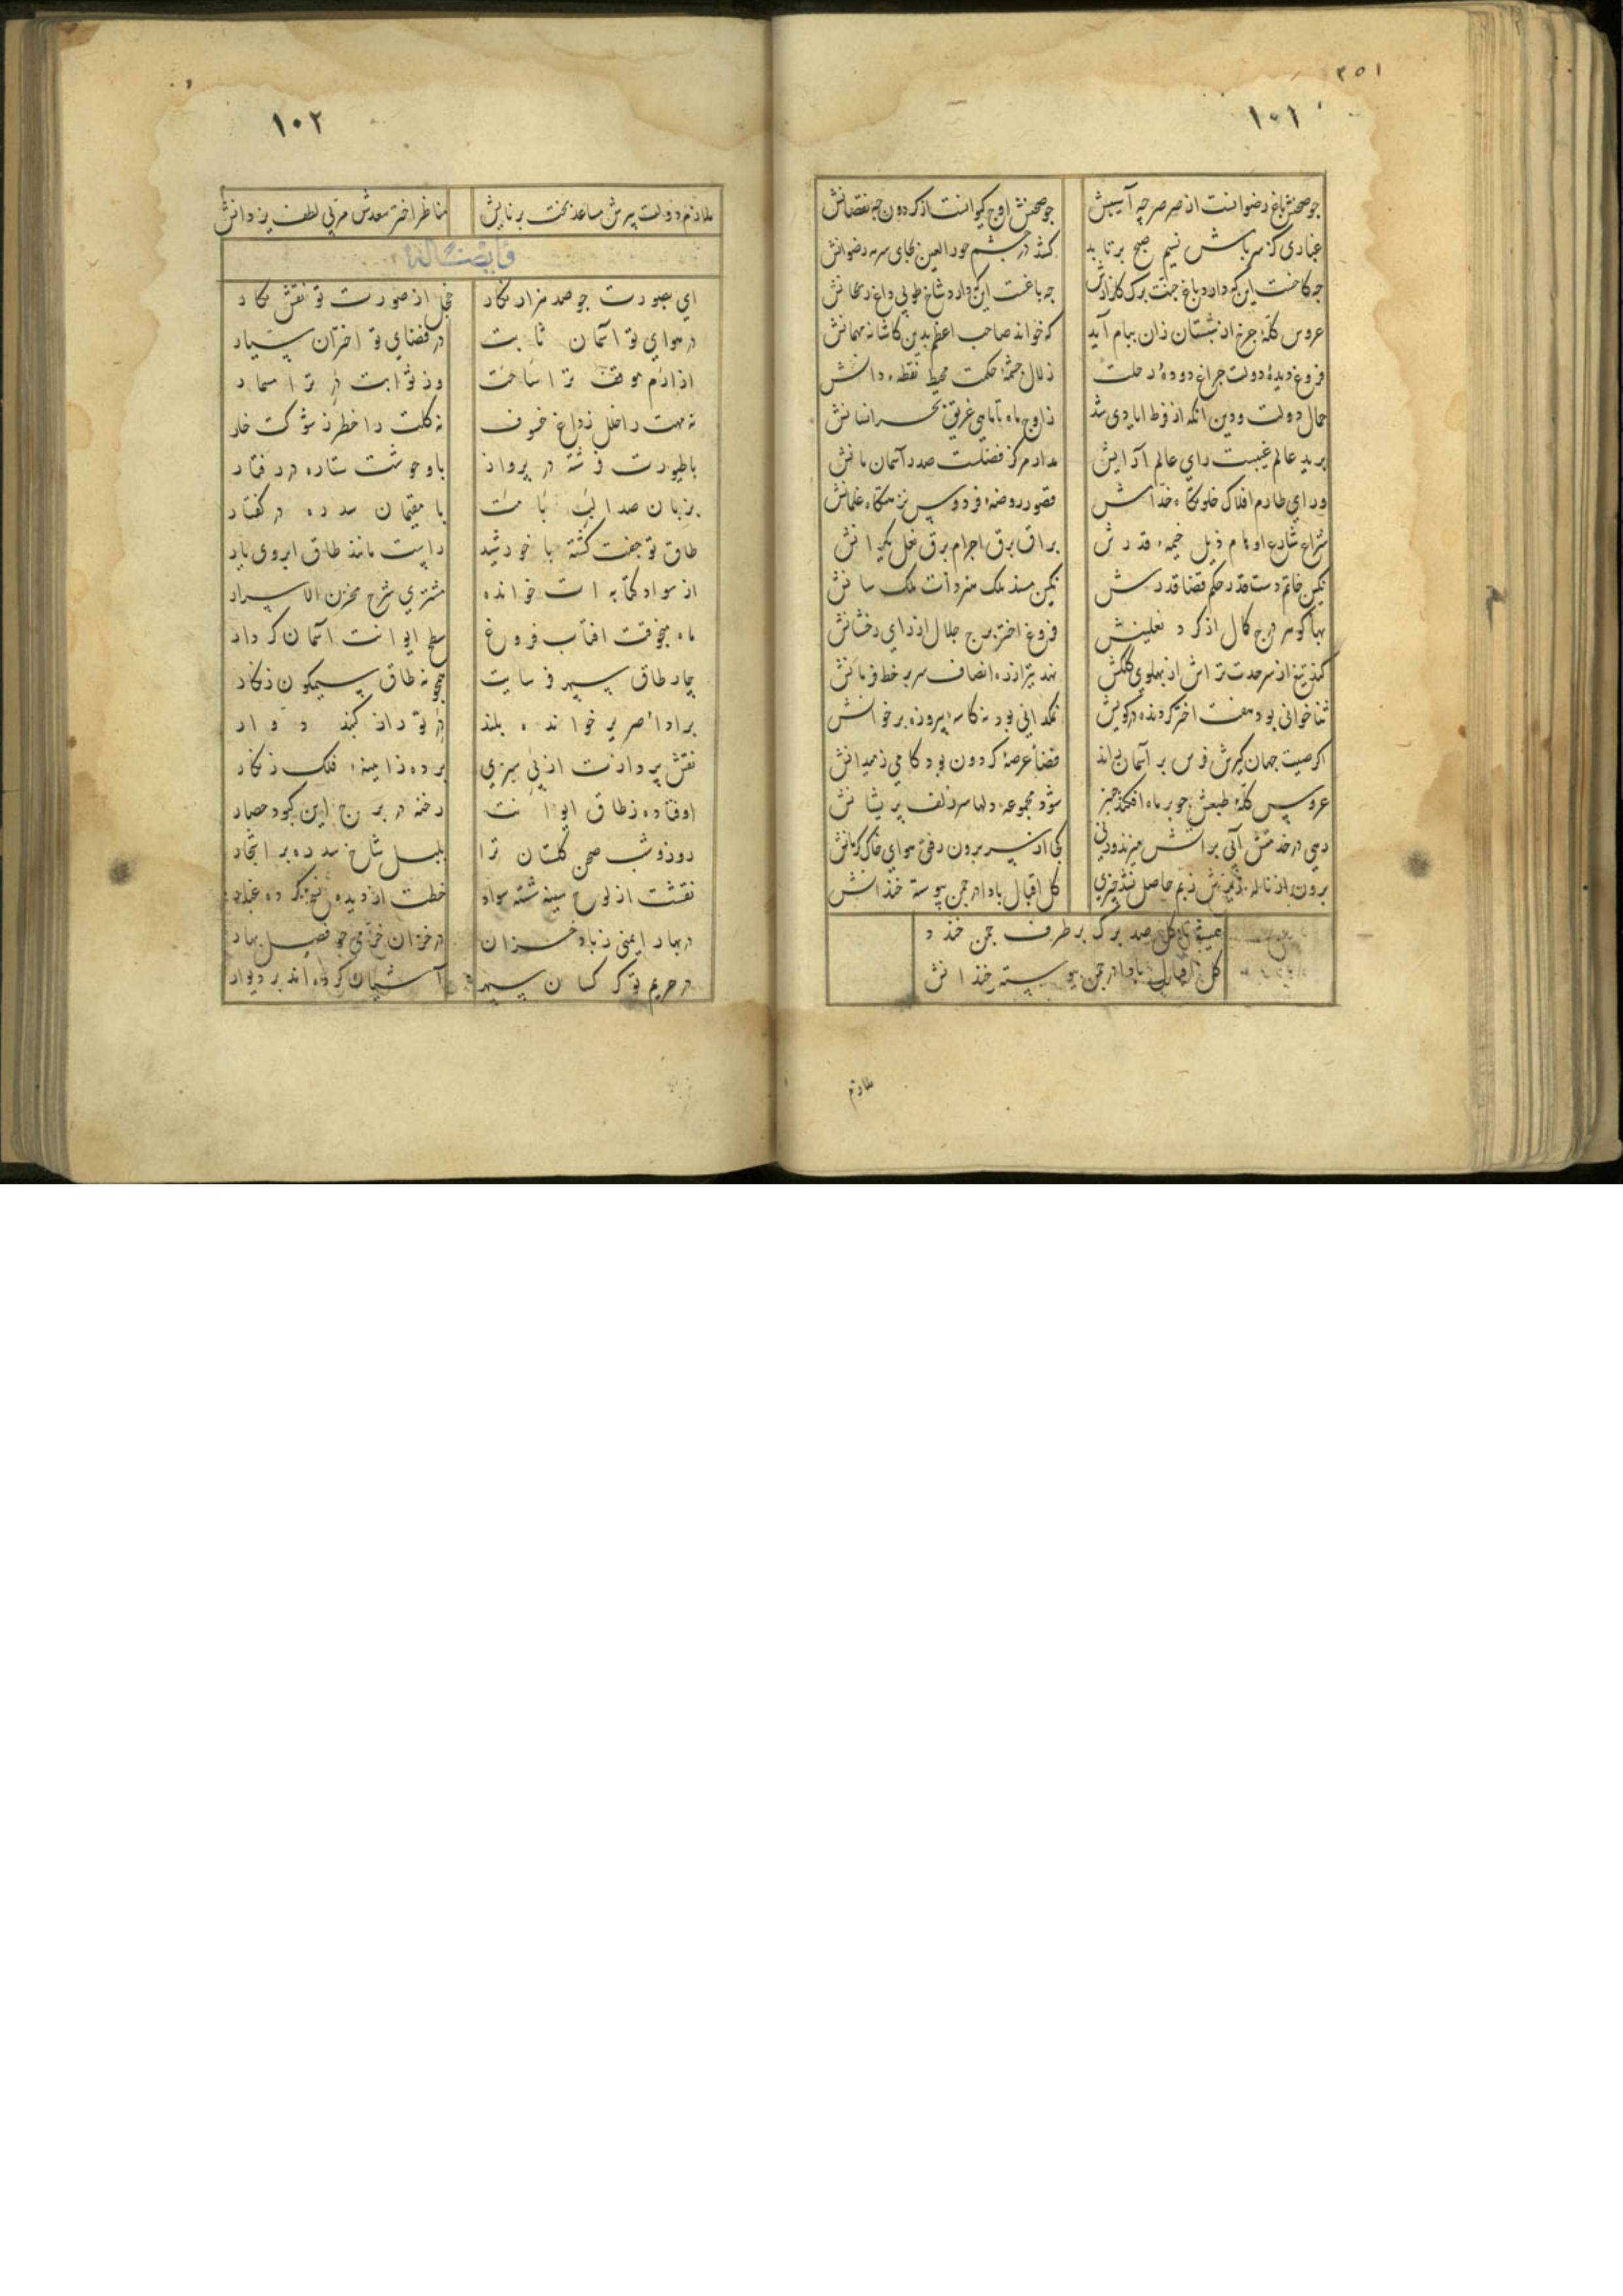 ۳۵۱
۱۰۱
جو صحنش باغ رضوانست از صرصر چه آسیبش جو صحنش اوج کیوانست از کردون چه نقصانش
غباری کز سر باش نسیم صبح برتابد کشد در چشم حور العین بجای سرمه رضوانش
چه کاخست این که دارد باغ جنت برک کلزارش چه باغست این که دارد شاخ طوبی داغ ریحانش
عروس کلهٔ چرخ از شبستان زان ببام آید که خواند صاحب اعظم بدین کاشانه مهمانش
فروغ دیدهٔ دولت چراغ دودهٔ رحلت زلال چشمهٔ حکمت محیط نقطهٔ دانش
جمال دولت و دین انکه از فرط ایادی شد ز اوج ماه تا ماهی غریق بحر احسانش
برید عالم غیبست رای عالم آرایش مدار مرکز فضلست صدر آسمان سانش
ورای طارم افلاک خلوتکاه خدامش قصور روضهٔ فردوس نزهتکاه غلمانش
شراع شارع اوهام ذیل خیمهٔ قدرش براق برق اجرام برق نعل یکرانش
نکین خاتم دست قدر حکم قضا قدرش نکین مسند ملک هنر ذات ملک سانش
بهاء کوهر درج کمال از کرد نعلینش فروغ اختر برج جلال از رای رخشانش
کمند تیغ از سر حدت تراش از پهلوی کلکش نهد تیر از ره انصاف سر بر خط فرمانش
ثنا خوانی بود هفت اختر کردنده در کویش نمکدانی بود نه کاسهٔ پیروزه بر خوانش
اکر صیت جهان کیرش فرس بر آسمان راند فضاء عرصهٔ کردون بود کامی ز میدانش
عروس کلهٔ طبعش جو بر ماه افکند چنبر شود مجموعهٔ دلها سر زلف پریشانش
دهی در خدمتش آبی بر آتش میزند ورنی کجا از سر برون رفتی هوای خاک کرمانش
برون از ناله زیر بش زبم حاصل نشد چیزی کل اقبال بادا در چمن پیوسته خندانش
همیشه تا کل صد برک بر طرف چمن خندد
کل اقبال بادا در چمن پیوسته خندانش
ملازم
۱۰۲
ملازم دولت پیرش مساعد بخت برنایش مناظر اختر سعدش مربی لطف یزدانش
ای بصورت جو صد هزار نکار خجل از صورت تو نقش نکار
در هوای تو آسمان ثابت در فضای تو اختران سیار
از ارم موقف ترا ساحت وز ثوابت در ترا مسمار
نه مهت را خلل ز داغ خسوف نه کلت را خطر ز شوکت خار
با طیورت فرشته در پرواز با وحوشت ستاره در رفتار
بزبان صدا لب بامت با مقیمان سدره در کفتار
طاق تو جفت کشته با خورشید راست مانند طاق ابروی یار
از سواد کتابه ات خوانده مشتری شرح مخزن الاسرار
ماه منجوقت افتاب فروغ سطح ایوانت آسمان کردار
چار طاق سپهر فرسایت همجو نه طاق سیمکون زنکار
برادا صریر خوانده بلند در تو راز کنبد دوار
نقش پردازت از پی سبزی برده ز اینهٔ فلک زنکار
اوفتاده ز طاق ایوانت رخنه در برج این کبود حصار
روز و شب صحن کلستان ترا بلبل شاخ سدره بر اشجار
نقشت از لوح سینه شسته سواد خطت از دیده محو کرده غبار
در بهار ایمنی ز باد خزان در خزان خرمی جو فصل بهار
در حریم تو کرکسان سپهر آشیان کرده اند بر دیوار